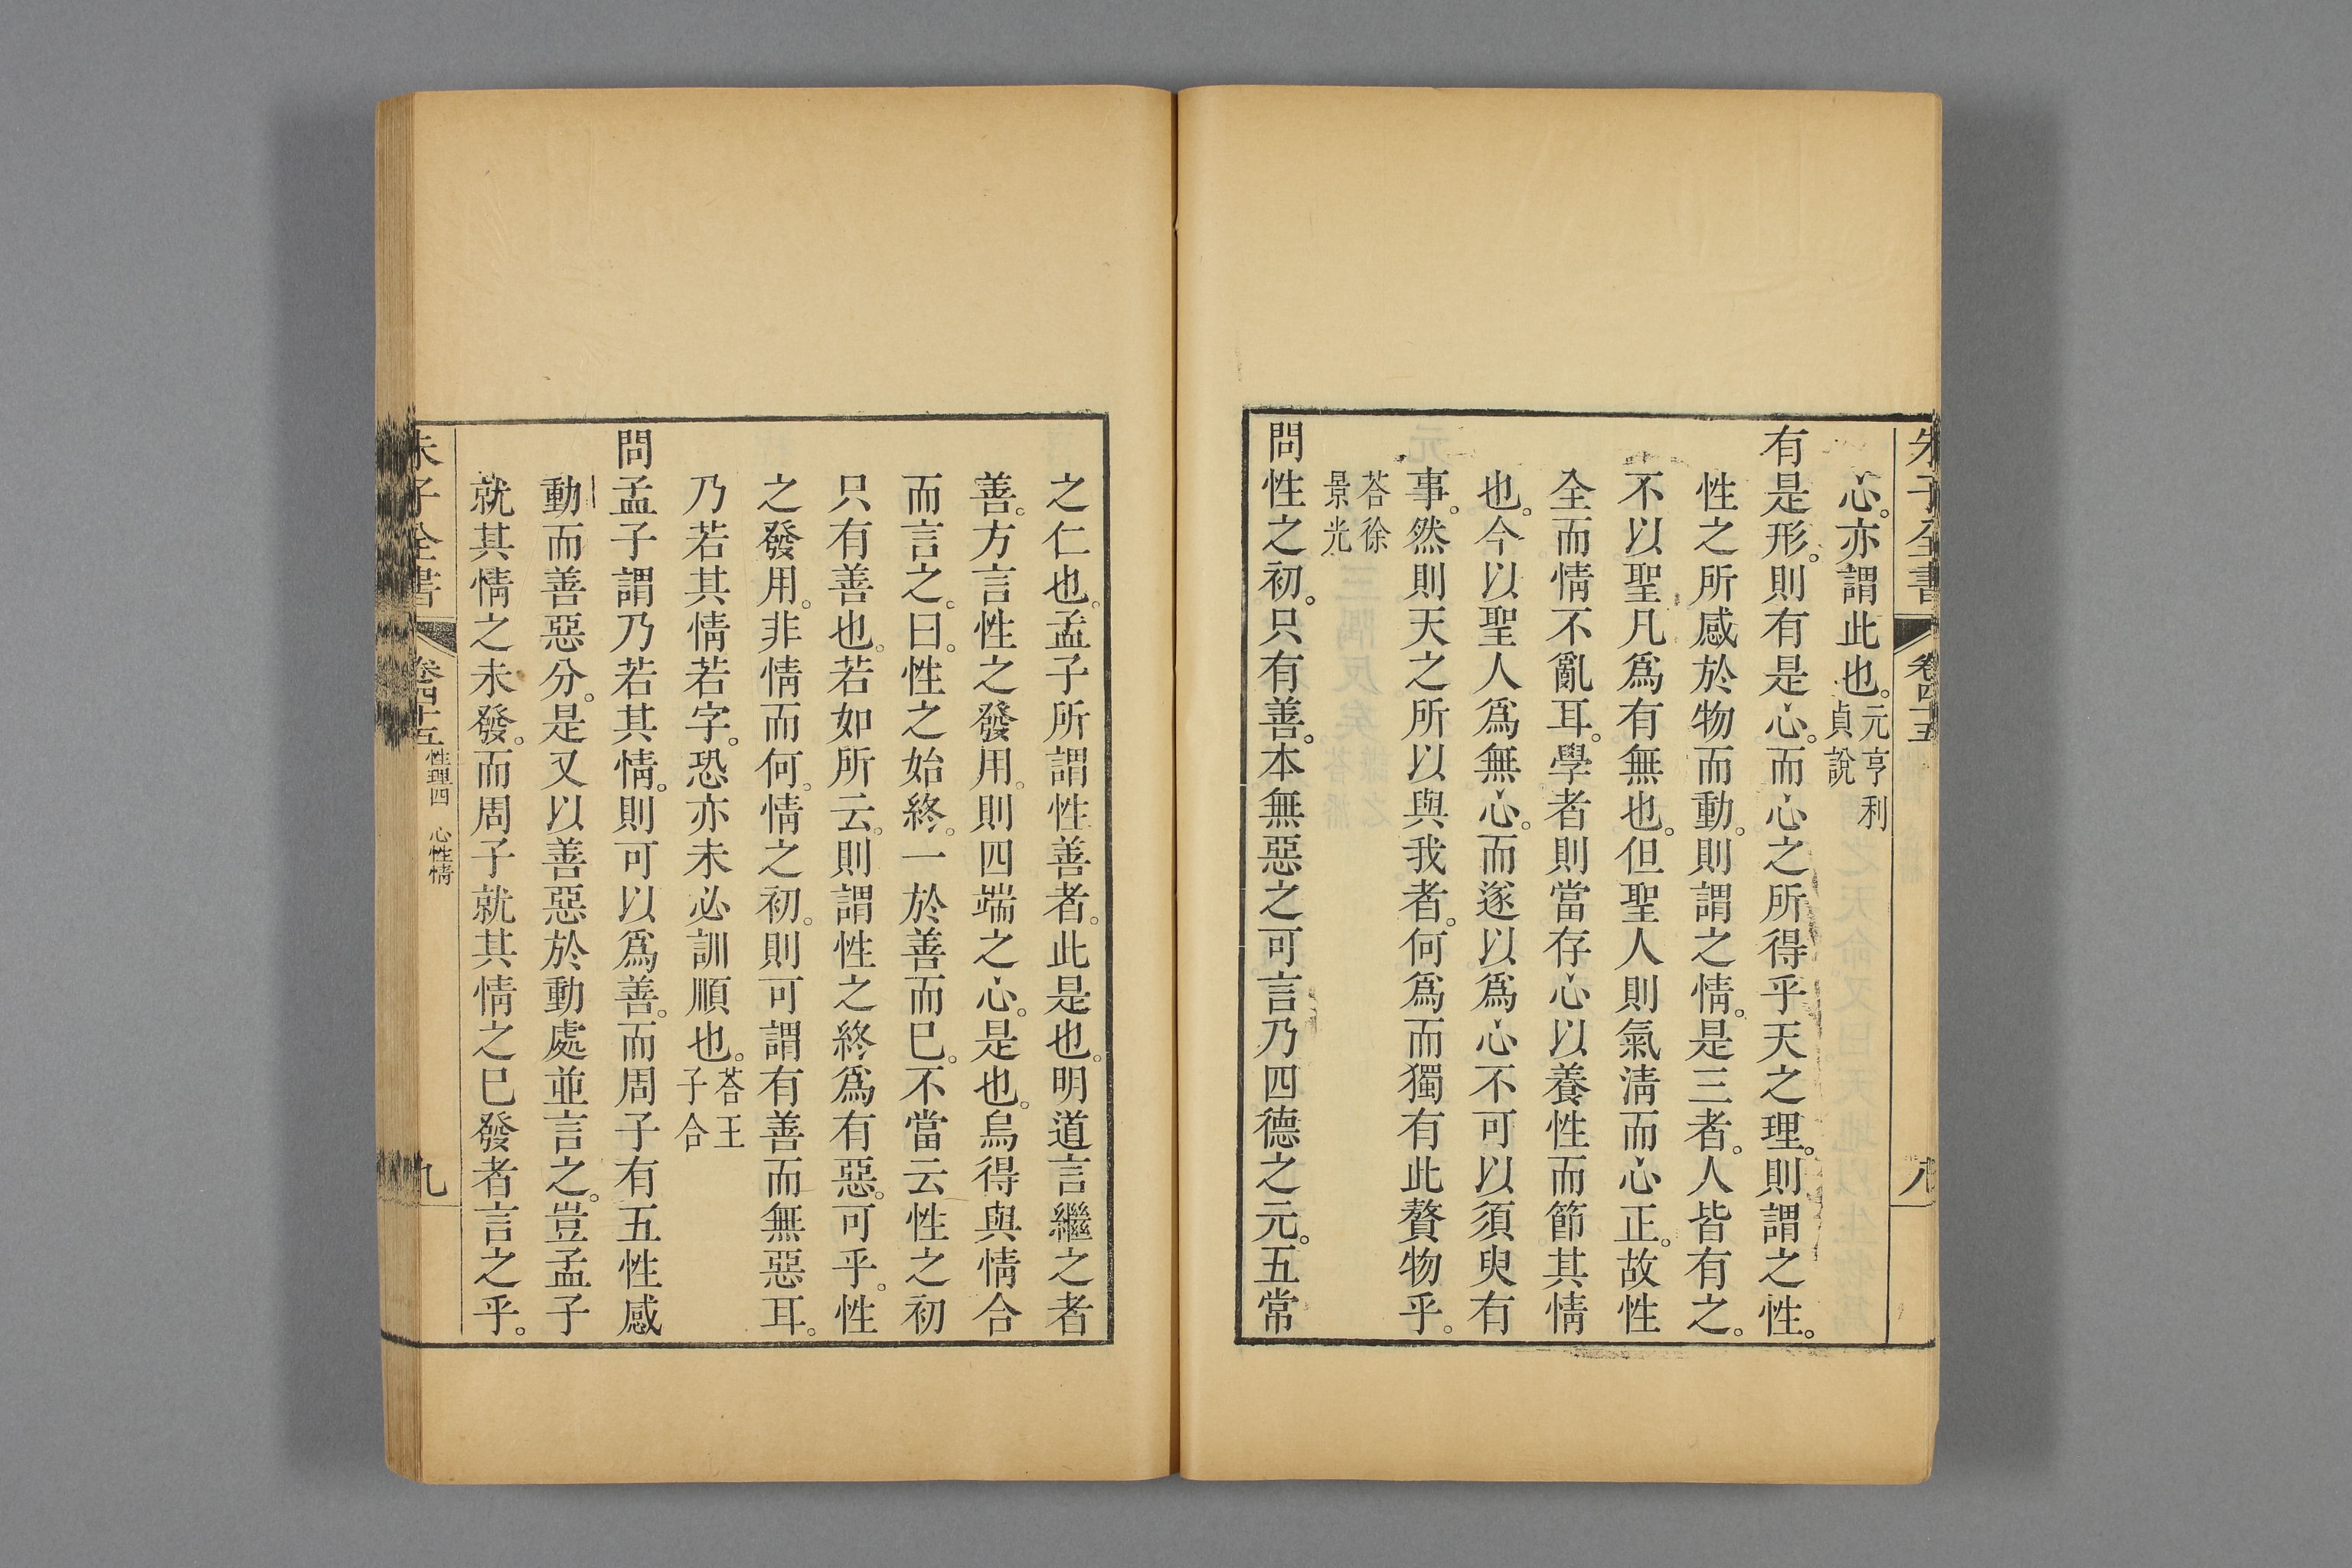 朱子全書 卷四十五 八
心。亦謂此也。元亨利貞說
有是形。則有是心。而心之所得乎天之理。則謂之性。
性之所感於物而動。則謂之情。是三者。人皆有之。
不以聖凡爲有無也。但聖人則氣淸而心正。故性
全而情不亂耳。學者則當存心以養性而節其情
也。今以聖人爲無心。而遂以爲心不可以須臾有
事。然則天之所以與我者。何爲而獨有此贅物乎。
荅徐景光
問性之初。只有善。本無惡之可言乃四德之元。五常
之仁也。孟子所謂性善者。此是也。明道言繼之者
善。方言性之發用。則四端之心。是也。烏得與情合
而言之。曰。性之始終。一於善而已。不當云性之初
只有善也。若如所云。則謂性之終爲有惡。可乎。性
之發用。非情而何。情之初。則可謂有善而無惡耳。
乃若其情若字。恐亦未必訓順也。荅王子合
問孟子謂乃若其情。則可以爲善。而周子有五性感
動而善惡分。是又以善惡於動處並言之。豈孟子
就其情之未發。而周子就其情之已發者言之乎。
朱子全書 卷四十五 性理四 心性情 九